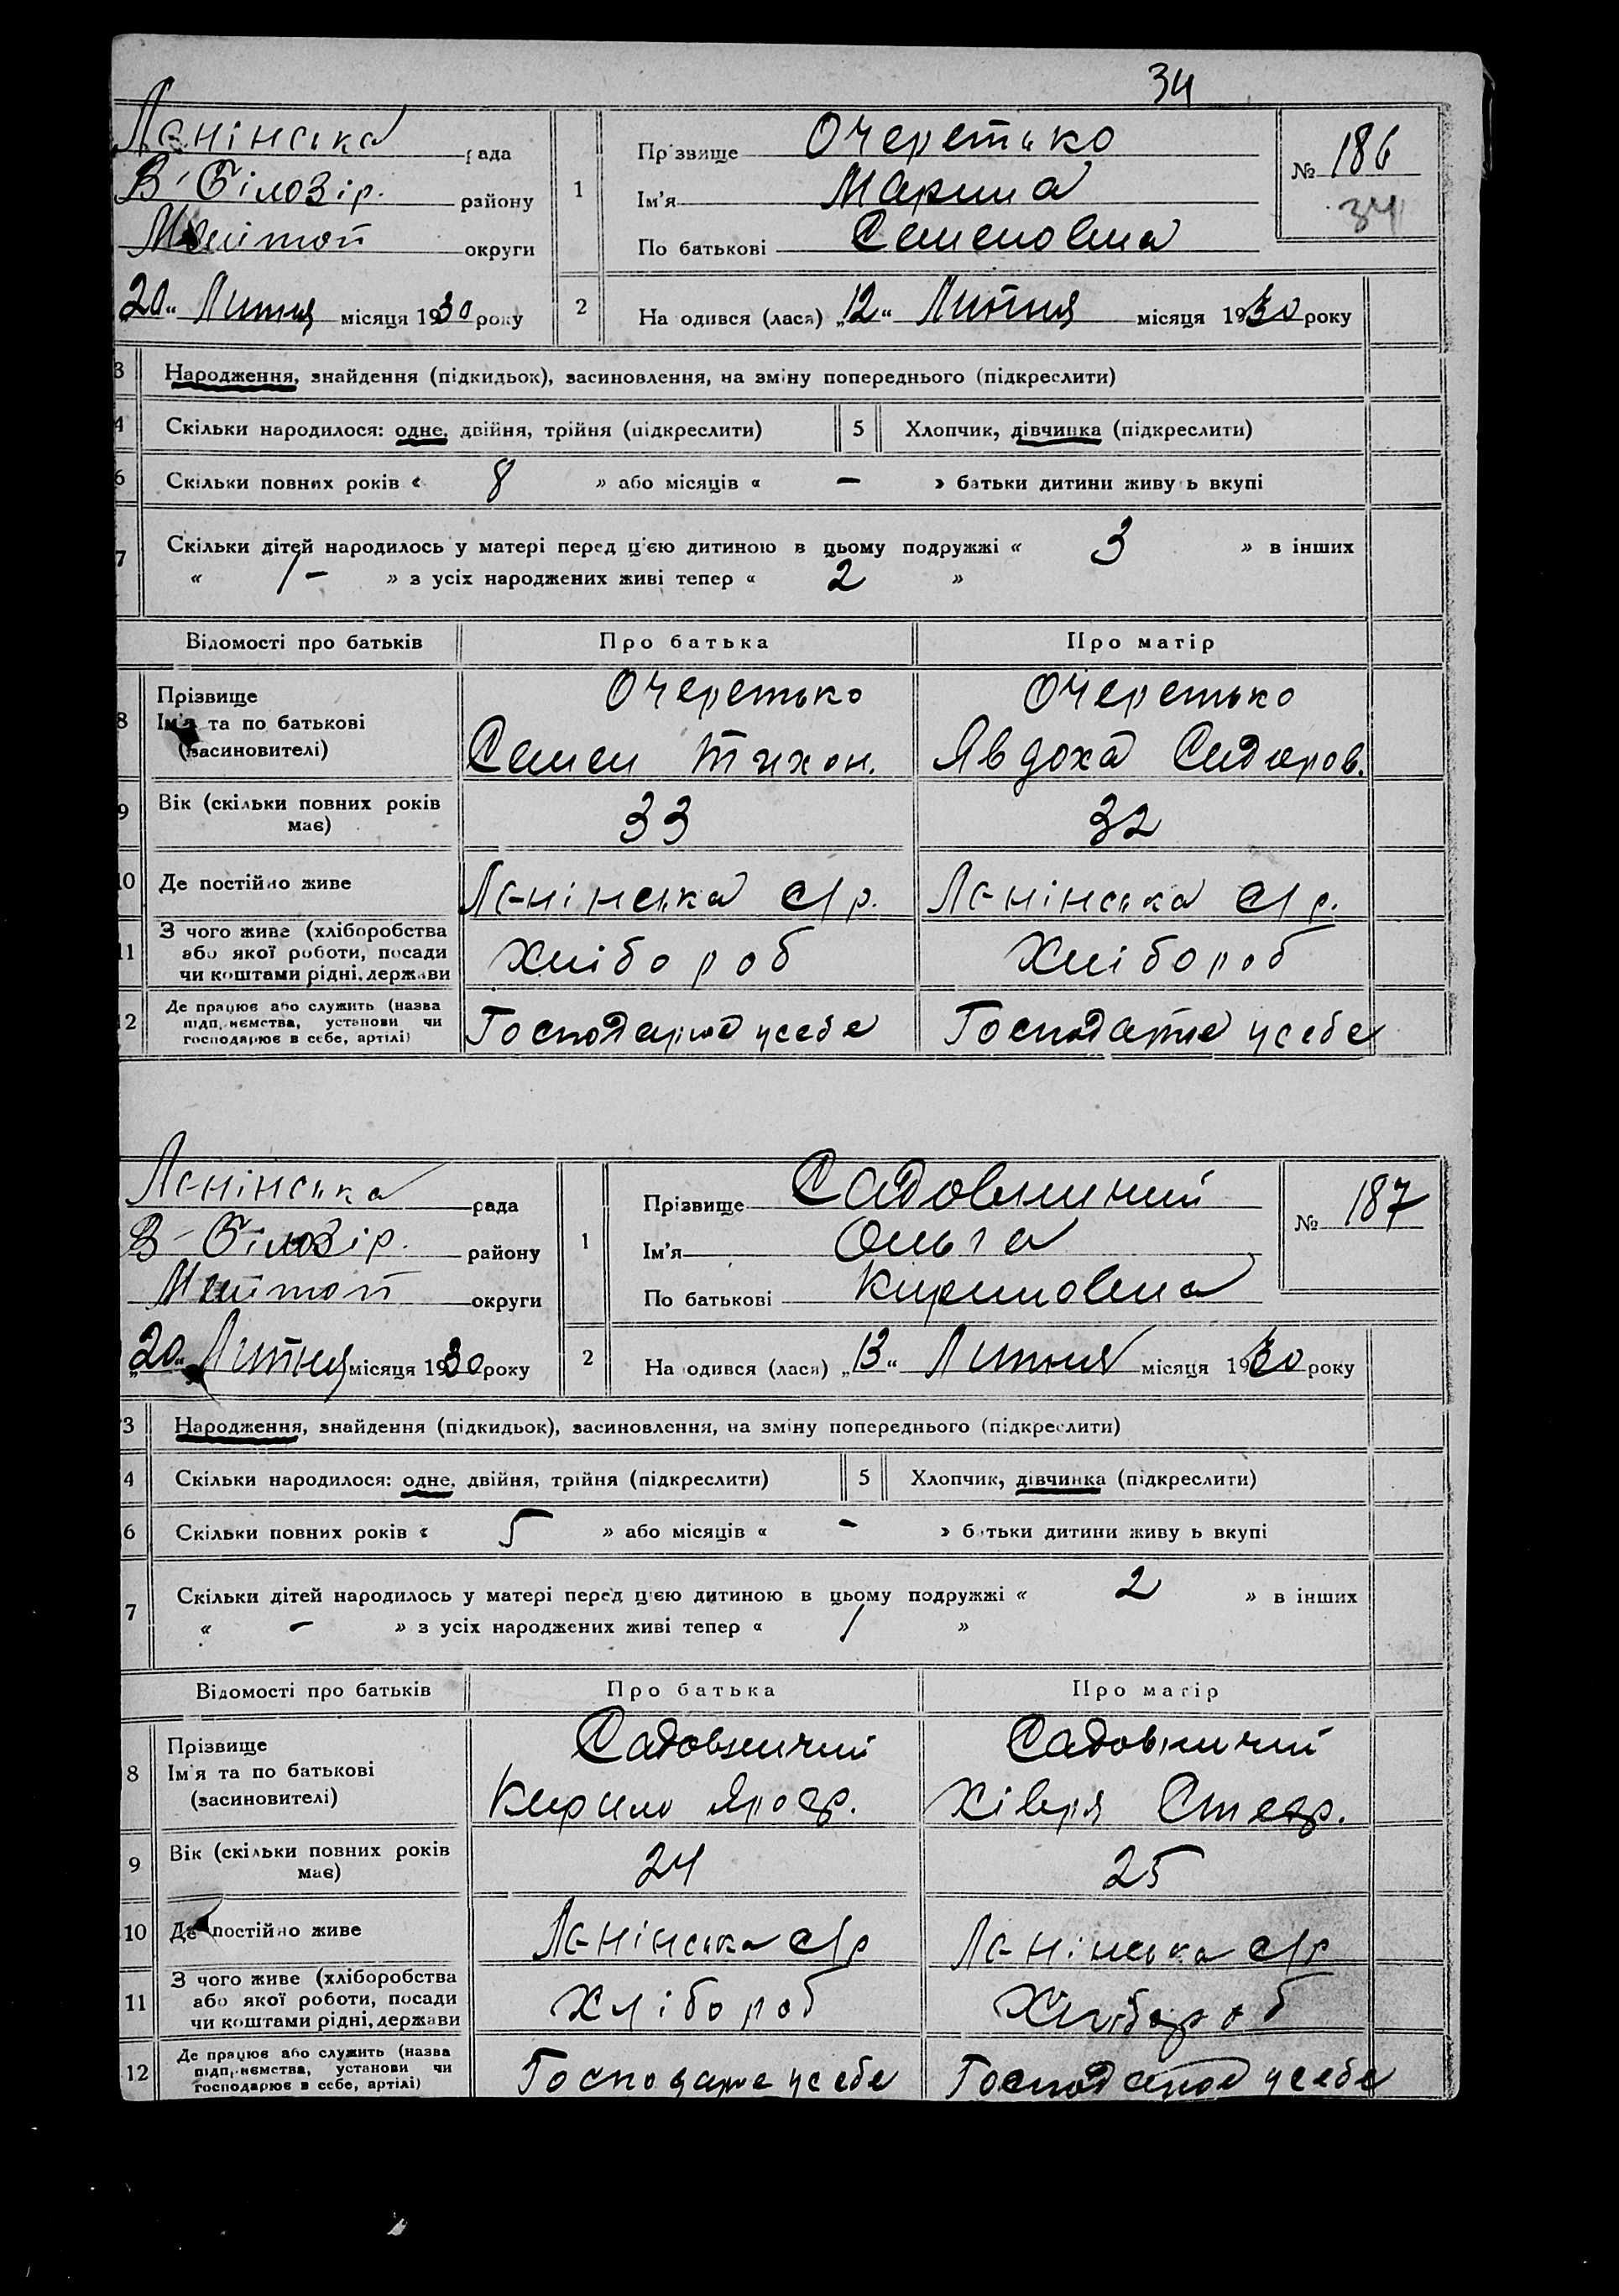 34
Ленінська рада
В-Білозір. району
М-литоп округи
„20“ Лютня місяця 1930 року
1
Прізвище Очеретько
Ім'я Марина
По батькові Семеновна
№ 186
34
2
На одився (лася) „12“ Лютня місяця 1930 року
3 Народження, знайдення (підкидьок), засиновлення, на зміну попереднього (підкреслити)
4 Скільки народилося: одне, двійня, трійня (підкреслити) 5 Хлопчик, дівчинка (підкреслити)
6 Скільки повних років « 8 » або місяців « – » батьки дитини живу ь вкупі
7 Скільки дітей народилось у матері перед цією дитиною в цьому подружжі « 3 » в інших
« /– » з усіх народжених живі тепер « 2 »
Відомості про батьків Про батька Про матір
8 Прізвище
Ім'я та по батькові
(засиновителі)
Очеретько
Семен Тихон.
Очеретько
Явдоха Сидоров.
9 Вік (скільки повних років
має)
33 32
10 Де постійно живе Ленінська с/р. Ленінська с/р.
11 З чого живе (хліборобства
або якої роботи, посади
чи коштами рідні, держави
Хлібороб Хлібороб
12 Де працює або служить (назва
підп, иємства, установи чи
господарює в себе, артілі)
Господарює у себе Господарює у себе
Ленінська рада
В-Білозір. району
М-литоп округи
„20“ Лютня місяця 1930 року
1
Прізвище Садовничий
Ім'я Ольга
По батькові Кириловна
№ 187
2
На одився (лася) „13“ Лютня місяця 1930 року
3 Народження, знайдення (підкидьок), засиновлення, на зміну попереднього (підкреслити)
4 Скільки народилося: одне, двійня, трійня (підкреслити) 5 Хлопчик, дівчинка (підкреслити)
6 Скільки повних років « 5 » або місяців « – » б тьки дитини живу ь вкупі
7 Скільки дітей народилось у матері перед цією дитиною в цьому подружжі « 2 » в інших
« – » з усіх народжених живі тепер « 1 »
Відомості про батьків Про батька Про матір
8 Прізвище
Ім'я та по батькові
(засиновителі)
Садовничий
Кирило
Садовничий
Хівря
9 Вік (скільки повних років
має)
24 25
10 Де постійно живе Ленінська с/р Ленінська с/р
11 З чого живе (хліборобства
або якої роботи, посади
чи коштами рідні, держави
Хлібороб Хлібороб
12 Де працює або служить (назва
підпр иємства, установи чи
господарює в себе, артілі)
Господарює у себе Господарює у себе